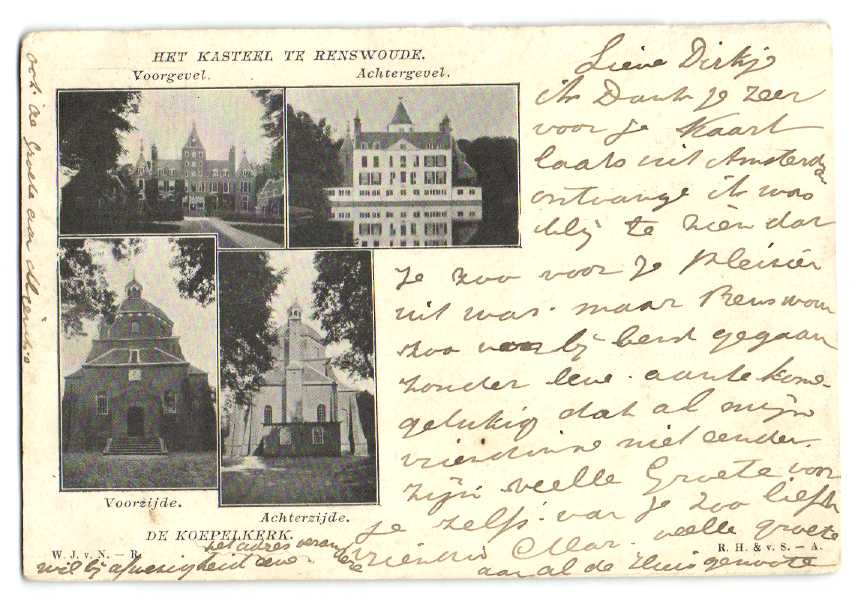 HET KASTEEL TE RENSWOUDE.
Voorgevel.
Achtergevel.
Voorzijde.
Achterzijde.
DE KOEPELKERK.
W. J. v. N. — R.
R. H. & v. S. — A.
Lieve Dirkje
ik Dank je zeer
voor je Kaart
laats uit Amsterdam
ontvange ik was
blij te zien dat
je zoo voor je pleisier
uit was. maar Renswou
zoo voor bij bent gegaan
zonder eve aante kome
gelukig dat al mijn
vriendinne niet eender
zijn veelle Groete voor
je zelf van je zoo liefh
vriendin veelle groete
aan al de Huisgenoote
ook de Groete aan
het adres veran
wil bij afwezigheid